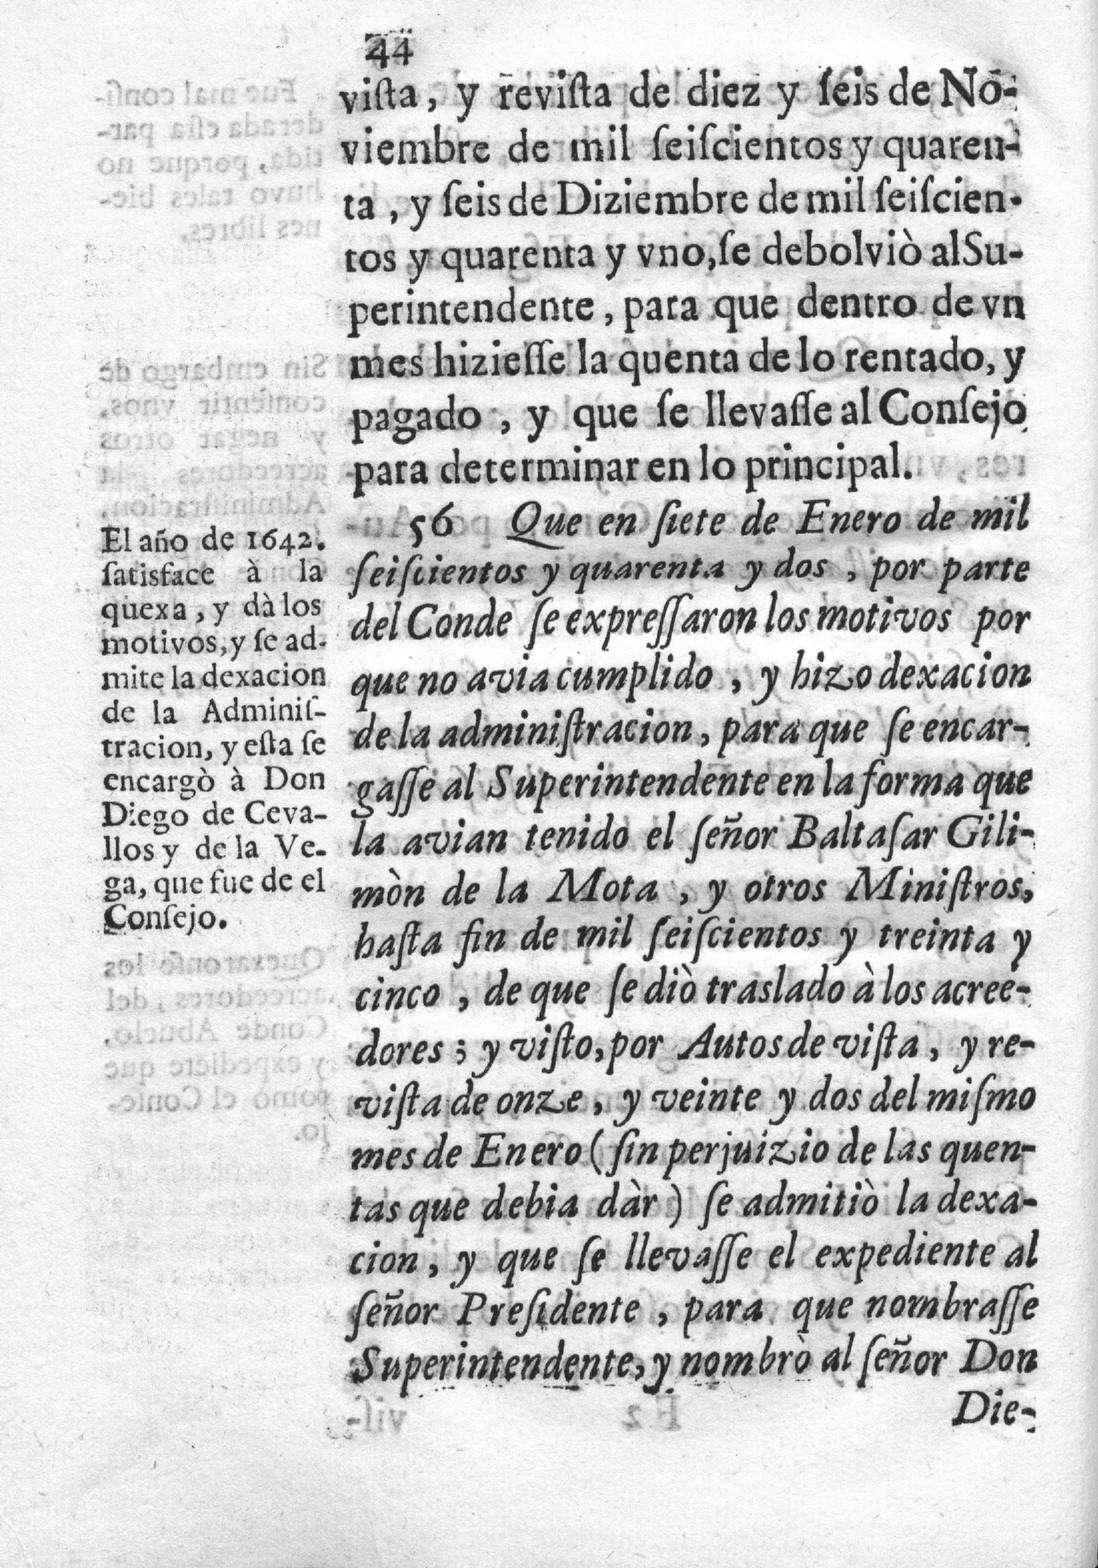 44
viſta, y reviſta de diez y ſeis de No-
viembre de mil ſeiſcientos y quaren-
ta, y ſeis de Diziembre de mil ſeiſcien-
tos y quarenta y vno, ſe debolviò al Su-
perintendente, para que dentro de vn
mes hizieſſe la quenta de lo rentado, y
pagado, y que ſe llevaſſe al Conſejo
para determinar en lo principal.
56 Que en ſiete de Enero de mil
ſeiſcientos y quarenta y dos, por parte
del Conde ſe expreſſaron los motivos por
que no avia cumplido, y hizo dexacion
de la adminiſtracion, para que ſe encar-
gaſſe al Superintendente en la forma que
la avian tenido el ſeñor Baltaſar Gili-
mòn de la Mota, y otros Miniſtros,
haſta fin de mil ſeiſcientos y treinta y
cinco, de que ſe diò traslado à los acree-
dores; y viſto, por Autos de viſta, y re-
viſta de onze, y veinte y dos del miſmo
mes de Enero (ſin perjuizio de las quen-
tas que debia dàr) ſe admitiò la dexa-
cion, y que ſe llevaſſe el expediente al
ſeñor Preſidente, para que nombraſſe
Superintendente, y nombrò al ſeñor Don
Die-
El año de 1642.
ſatisface à la
quexa, y dà los
motivos, y ſe ad-
mite la dexacion
de la Adminiſ-
tracion, y eſta ſe
encargò à Don
Diego de Ceva-
llos y de la Ve-
ga, que fue de el
Conſejo.